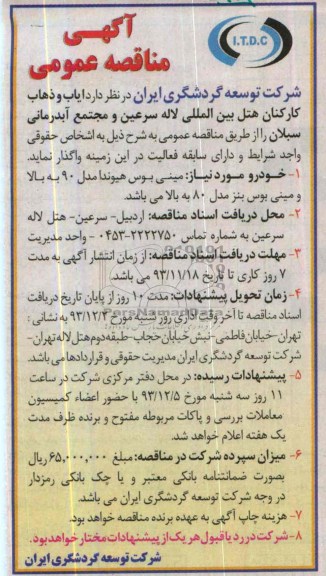 I.T.D.C
آگهی
مناقصه عمومی
شرکت توسعه گردشگری ایران در نظر دارد ایاب و ذهاب
کارکنان هتل بین المللی لاله سرعین و مجتمع آبدرمانی
سبلان را از طریق مناقصه عمومی به شرح ذیل به اشخاص حقوقی
واجد شرایط و دارای سابقه فعالیت در این زمینه واگذار نماید.
۱- خودرو مورد نیاز: مینی بوس هیوندا مدل ۹۰ به بالا
و مینی بوس بنز مدل ۸۰ به بالا می باشد.
۲- محل دریافت اسناد مناقصه: اردبیل- سرعین- هتل لاله
سرعین به شماره تماس ۲۲۲۲۷۵۰-۰۴۵۳ - واحد مدیریت
۳- مهلت دریافت اسناد مناقصه: از زمان انتشار آگهی به مدت
۷ روز کاری تا تاریخ ۹۳/۱۱/۱۸ می باشد.
۴- زمان تحویل پیشنهادات: مدت ۱۰ روز از پایان تاریخ دریافت
اسناد مناقصه تا آخر وقت اداری روز شنبه مورخ ۹۳/۱۲/۲ به نشانی:
تهران-خیابان فاطمی-نبش خیابان حجاب-طبقه دوم هتل لاله تهران-
شرکت توسعه گردشگری ایران مدیریت حقوقی و قراردادها می باشد.
۵- پیشنهادات رسیده: در محل دفتر مرکزی شرکت در ساعت
۱۱ روز سه شنبه مورخ ۹۳/۱۲/۵ با حضور اعضاء کمیسیون
معاملات بررسی و پاکات مربوطه مفتوح و برنده ظرف مدت
یک هفته اعلام خواهد شد.
۶- میزان سپرده شرکت در مناقصه: مبلغ ۶۵,۰۰۰,۰۰۰ ریال
بصورت ضمانتنامه بانکی معتبر و یا چک بانکی رمزدار
در وجه شرکت توسعه گردشگری ایران می باشد.
۷- هزینه چاپ آگهی به عهده برنده مناقصه خواهد بود.
۸- شرکت در رد یا قبول هر یک از پیشنهادات مختار خواهد بود.
شرکت توسعه گردشگری ایران